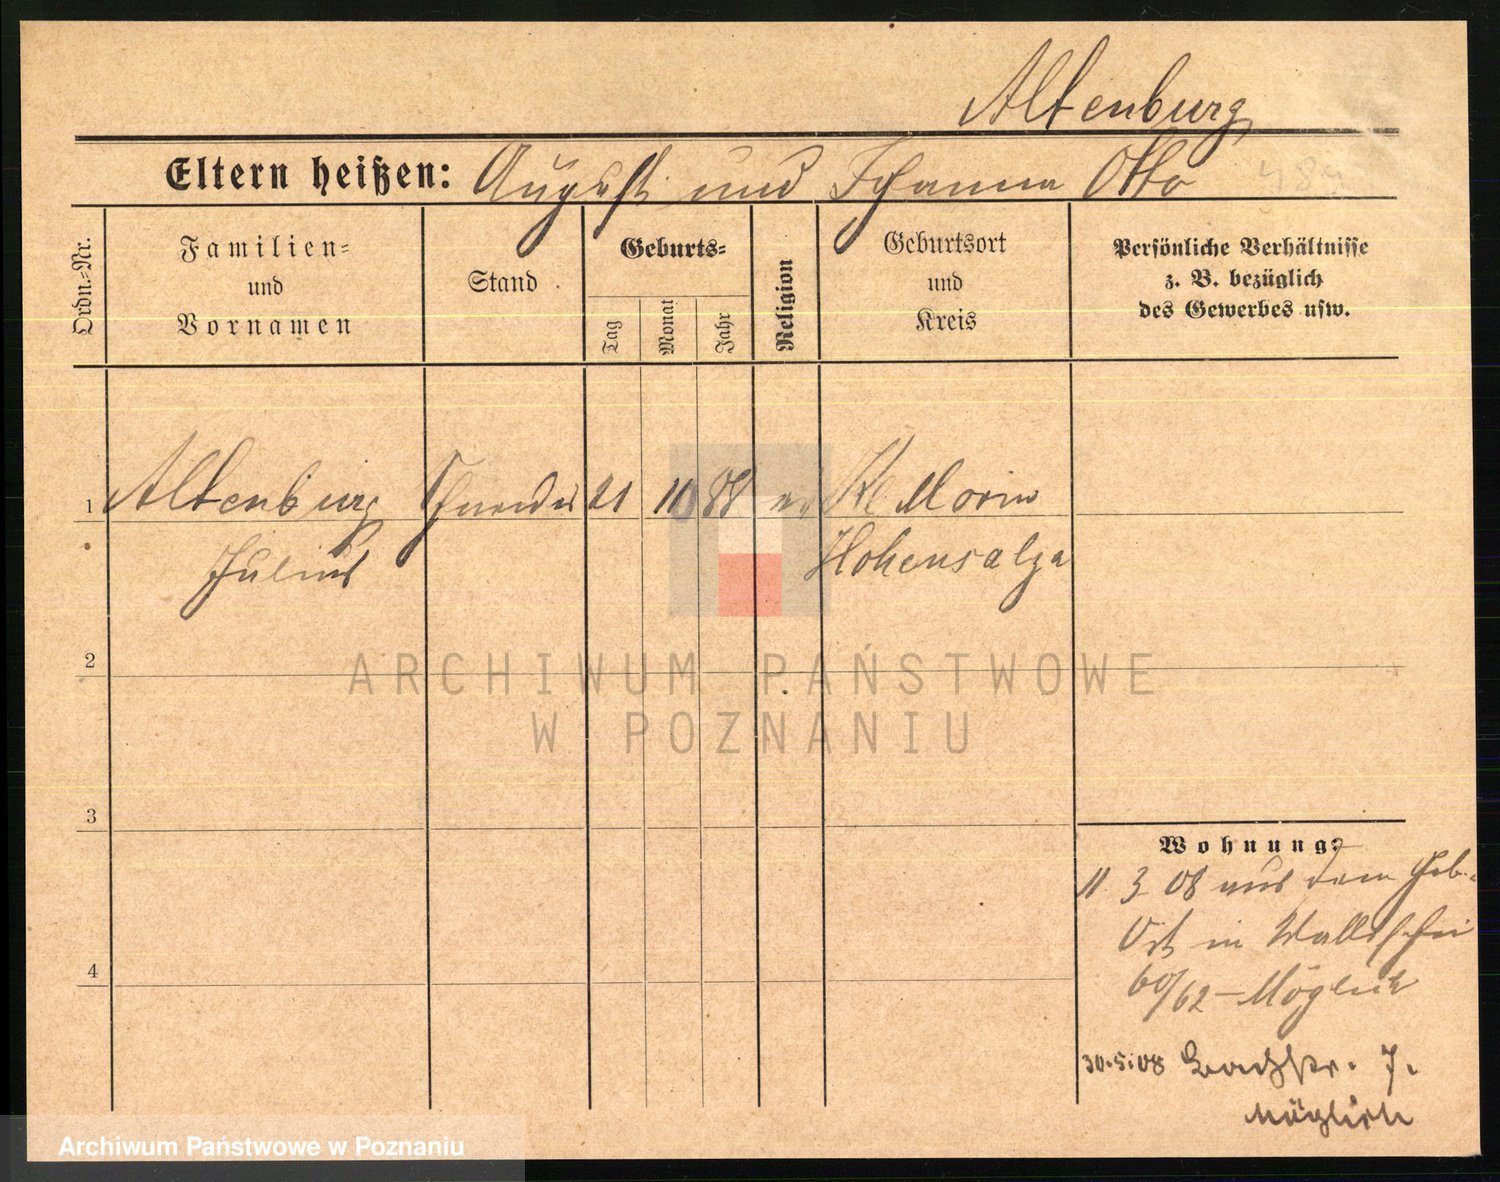 Altenburg
Eltern heißen: August und Johanna Otto
Ordn.=Nr.
Familien= und Vornamen
Stand
Geburts=
Tag
Monat
Jahr
Religion
Geburtsort und Kreis
Persönliche Verhältnisse
z. B. bezüglich
des Gewerbes usw.
1 Altenburg Schneider 21 10 88 ev Kl Morin
Julius Hohensalza
2
ARCHIWUM PAŃSTWOWE
W POZNANIU
3
Wohnung:
11 3 08 aus dem Geb.-
Ort in Wallischei
60/62 - Möglich
4
30.5.08 Bachstr. 7.
Möglich
Archiwum Państwowe w Poznaniu